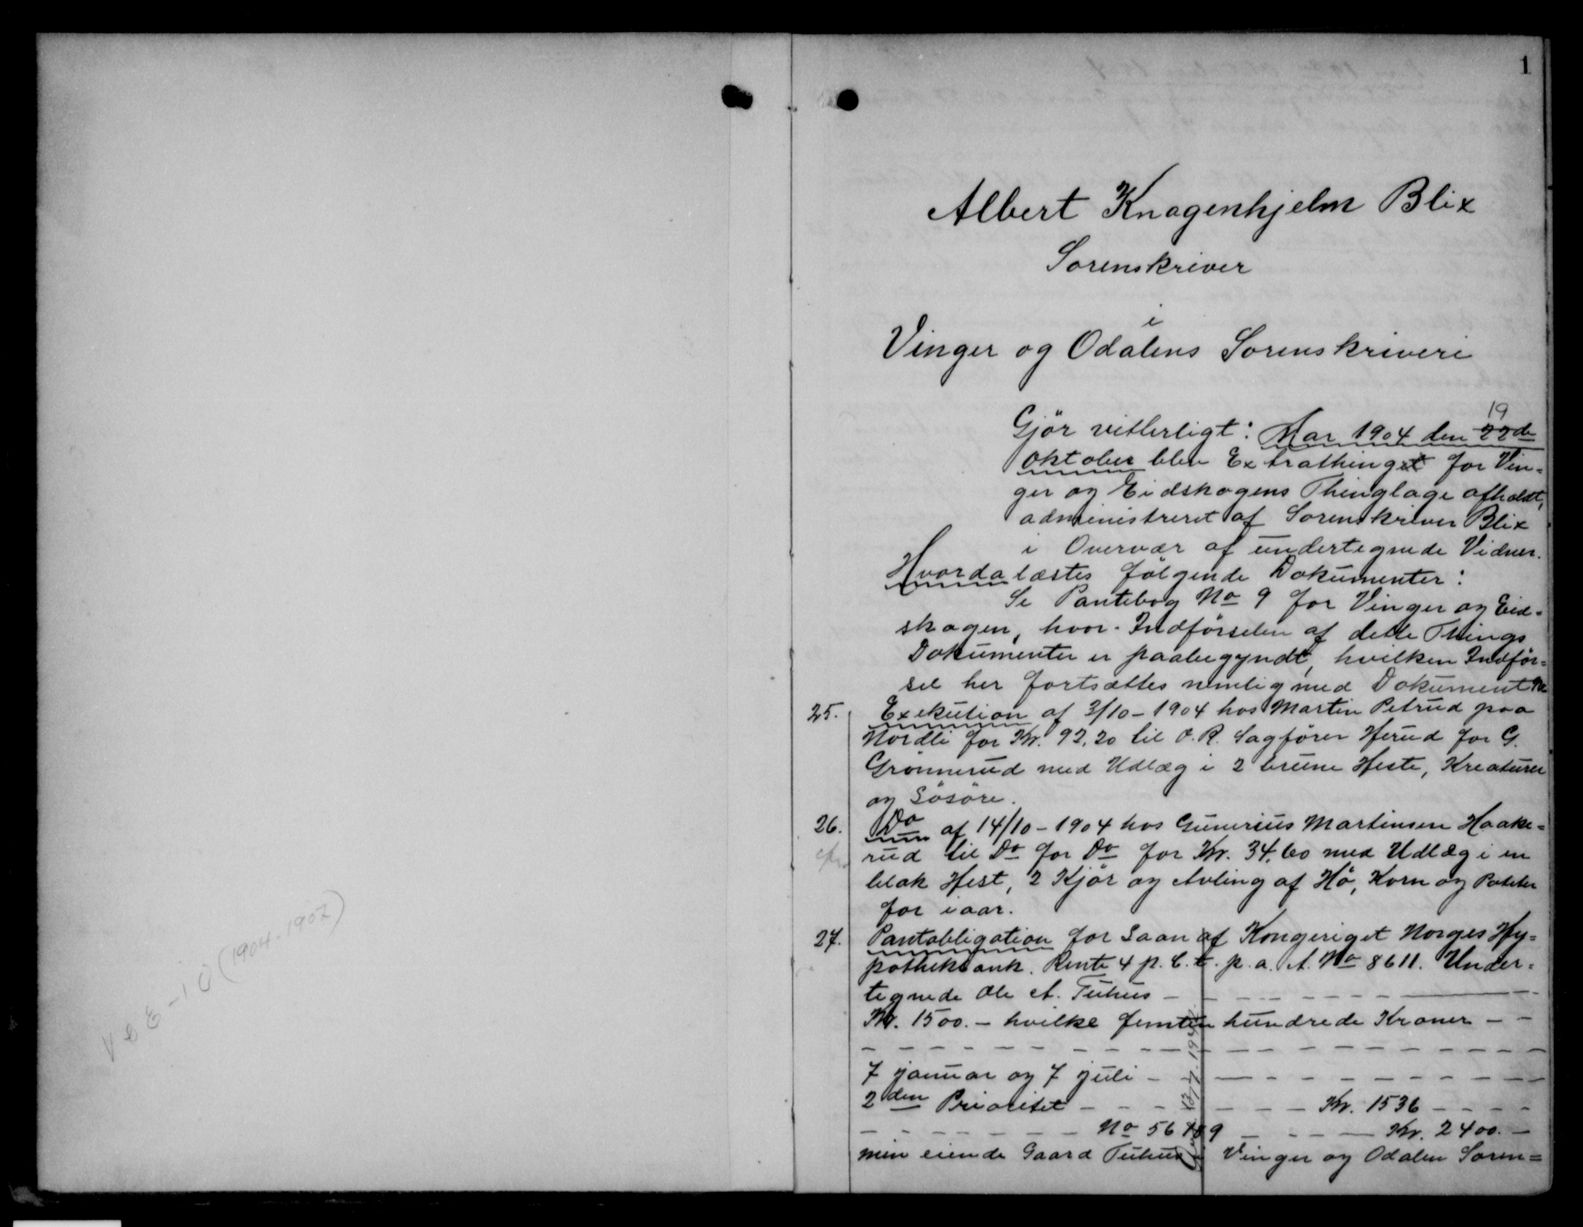 1
Albert Knagenhjelm Blix
Sorenskriver
i
Vinger og Odalens Sorenskriveri
19
Gjör vitterligt: Aar 1904 den 22de
oktober blev Extrathinget for Vin-
ger og Eidskogens Thinglage afholdt,
administreret af Sorenskriver Blix
i Overvær af undertegnede Vidner.
Hvorda læstes følgende Dokumenter:
Se Pantebog No 9 for Vinger og Eid-
skogen, hvor Indførselen af dette Things
Dokumenter er paabegyndt, hvilken Indför-
sel her fortsættes nemlig med Dokument No
25. Exekution af 3/10-1904 hos Martin Petrud paa
Nordli for Kr. 92,20 til O.R. Sagfører Herud for G.
Grönnerud med Udlæg i 2 brune Heste, Kreaturer
og Lösöre.
26. Do af 14/10-1904 hos Gunerius Martinsen Haake-
rud til Do for Do for Kr. 34,60 med Udlæg i en
blak Hest, 2 Kjör og Avling af Hö, Korn og Poteter
for iaar.
27. Pantobligation for Laan af Kongeriget Norges Hy-
pothekbank. Rente 4 p.C.t. p.a. A. No 8611. Under-
tegnede Ole A. Tuhus -
Kr. 1500.- hvilke femten hundrede Kroner - -
7 januar og 7 juli -
2den Prioritet - - - Kr. 1536 - - -
No 56 - - - Kr. 2400.-
min eiende Gaard Tuhus i Vinger og Odalen Soren-
(1904-1907)